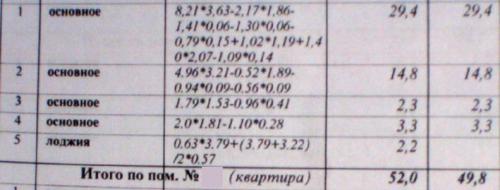 1 основное 8,21*3,63-2,17*1,86- 29,4 29,4
1,41*0,06-1,30*0,06-
0,79*0,15+1,02*1,19+1,4
0*2,07-1,09*0,14
2 основное 4.96*3.21-0.52*1.89- 14,8 14,8
0.94*0.09-0.56*0.09
3 основное 1.79*1.53-0.96*0.41 2,3 2,3
4 основное 2.0*1.81-1.10*0.28 3,3 3,3
5 лоджия 0.63*3.79+(3.79+3.22) 2,2
/2*0.57
Итого по пом. № (квартира) 52,0 49,8